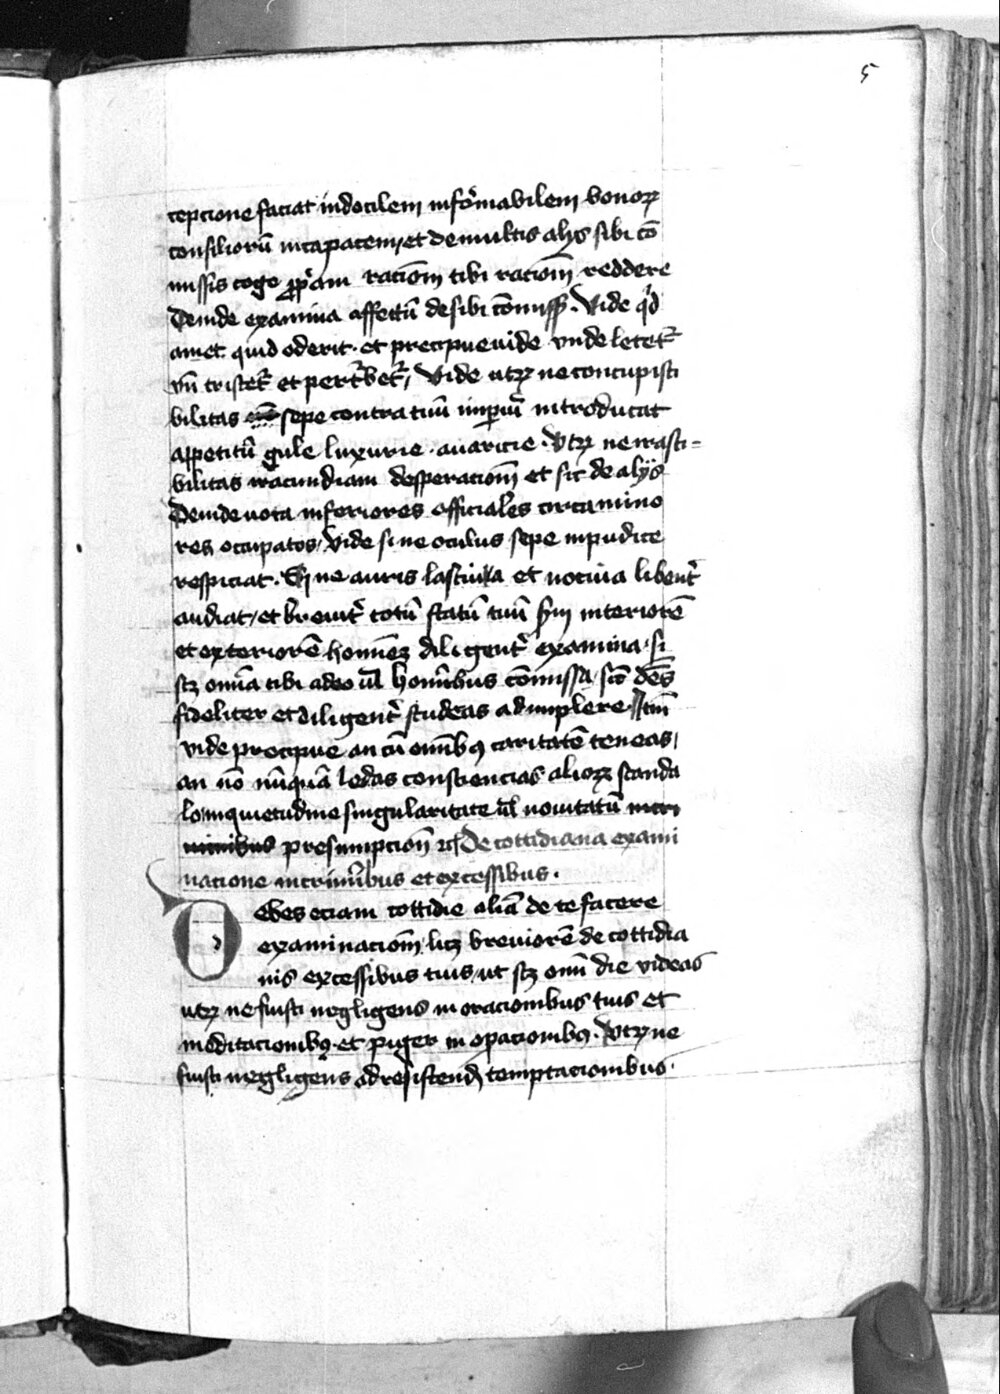 5
cepcione faciat indocilem infōrmabilem bonoꝝ
consiliorū incapacem, et de multis alijs sibi cō
missis coge ꝓpam racionē tibi racionē reddere
Deinde examina affectū de sibi cōmissis. Vide qd
amet quid oderit. et precipue vide vnde letet᷑
vn̄ tristet᷑ et pert᷑bet᷑, Vide utꝝ ne concupisci
bilitas sepe contra tuū imperiū introducat
appetitū gule luxurie. auaricie. Vtꝝ ne irasci=
bilitas iracundiam desperacionē et sic de alijs
Deinde nota inferiores officiales circa mino
res occupatos, Vide si ne oculus sepe inpudice
respiciat. Si ne auris lasciuia et nociua libent᷑
audiat, et breuit᷑ totū statū tuū scdm interiorē
et exteriorē hominē diligent᷑ examina. si
scꝫ omīa tibi a deo ul̄ hominibus cōmissa, scdm dēs
fideliter et diligent᷑ studeas adimplere. Itm̄
vide precipue an cū omībꝫ caritatē teneas,
an nō nūquā ledas consciencias alioꝝ scanda
lo, inquietudine singularitate ul̄ nouitatū
presumpcionē ꝛc̄ De cottidiana exami
nacione in criminibus et excessibus.
Debes eciam cottidie aliā de te facere
examinacionē, licꝫ breuiorē de cottidia
nis excessibus tuis, ut scꝫ omī die videas
utꝝ ne fuisti negligens in oracionibus tuis et
meditacionibꝫ. et piger in opacionibꝫ. Vtꝝ ne
fuisti negligens ad resistend̄ temptacionibus.